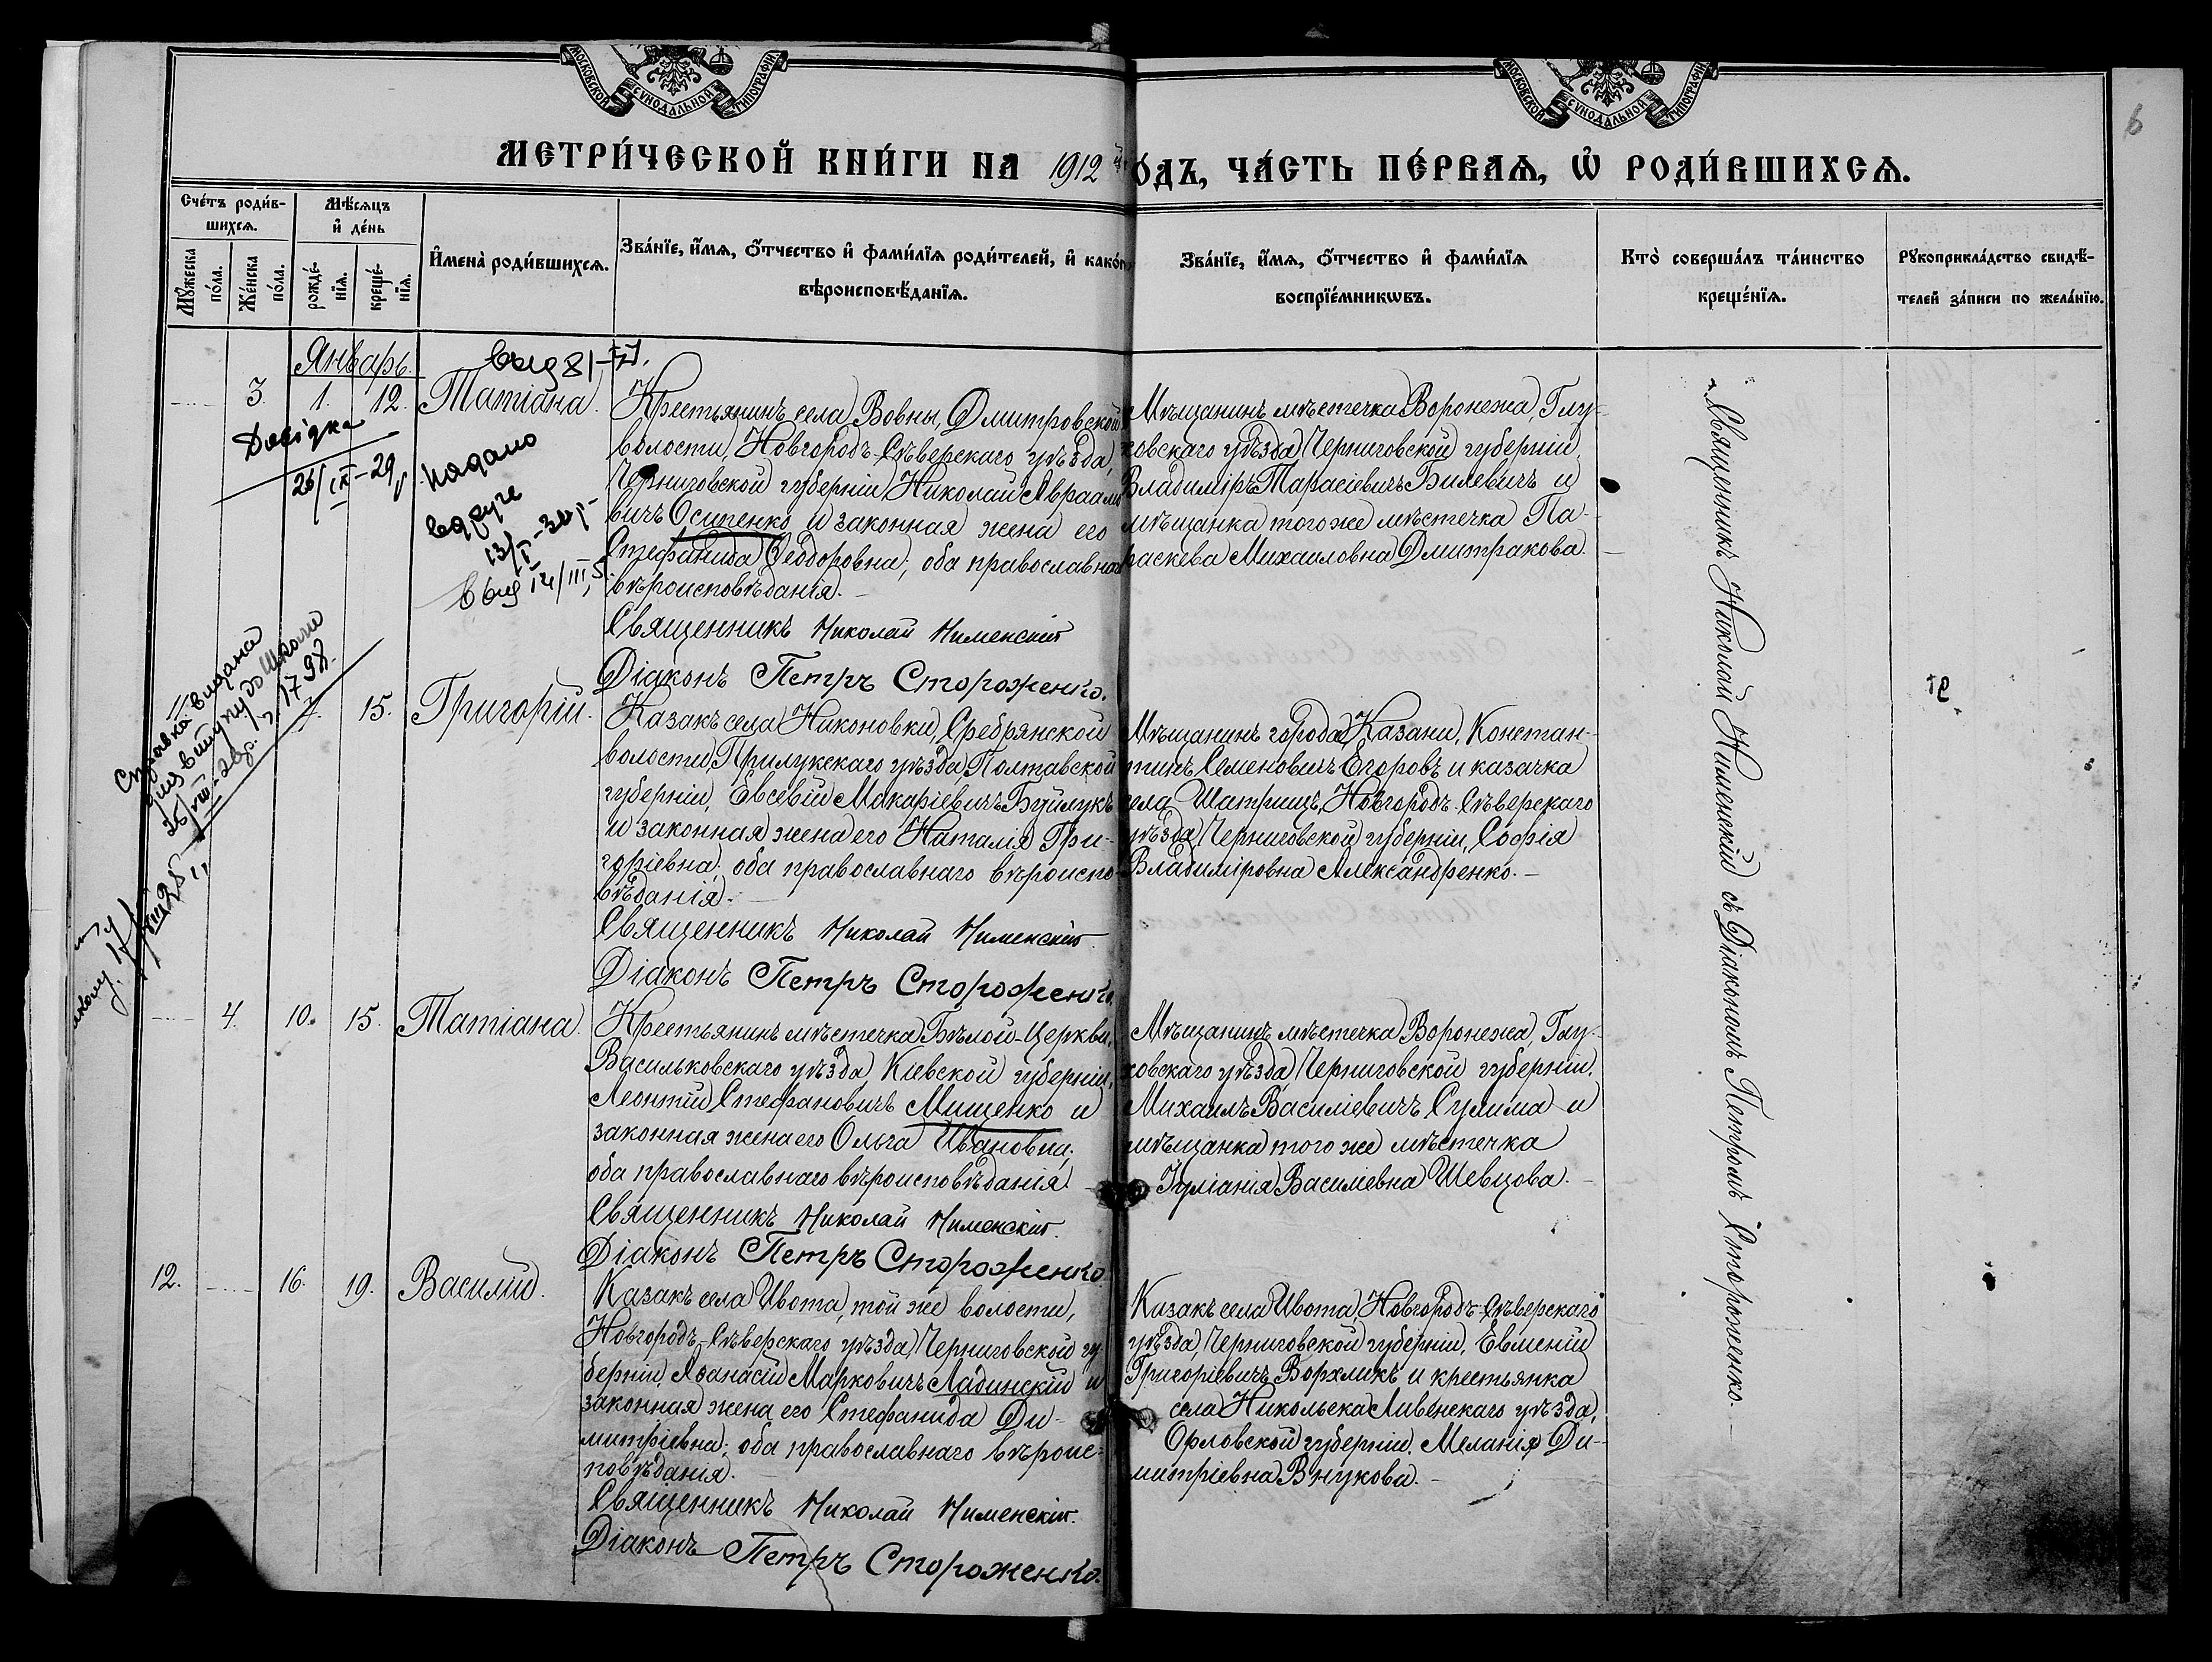 МОСКОВСКОЙ СѴНОДАЛЬНОЙ ТИПОГРАФІИ
МОСКОВСКОЙ СѴНОДАЛЬНОЙ ТИПОГРАФІИ
6
МЕТРИ́ЧЕСКОЙ КНИ́ГИ НА 1912 й
ОДЪ, ЧА́СТЬ ПЕ́РВАѦ, Ѡ РОДИ́ВШИХСѦ.
Сче́тъ роди́в-
шихсѧ.
Мꙋ́жеска
по́ла.
Же́нска
по́ла.
Мѣ́сѧцъ
и҆ де́нь
рожде́-
нїѧ.
креще́-
нїѧ.
И҆мена̀ роди́вшихсѧ.
Зва́нїе, и҆́мѧ, ѻ҆́тчество и҆ фами́лїѧ роди́телей, и҆ како́гѡ
вѣроисповѣ́данїѧ.
Зва́нїе, и҆́мѧ, ѻ҆́тчество и҆ фами́лїѧ
воспрїе́мникѡвъ.
Кто̀ соверша́лъ та́инство
креще́нїѧ.
Рꙋкоприкла́дство свидѣ́-
телей за́писи по жела́нїю.
Январь.
3. 1. 12. Татіана.
Довідка
26/IX-29р
надано
вдруге
Крестьянинъ села Вовны, Дмитровской
волости, Новгородъ-Сѣверскаго уѣзда,
Черниговской губерніи, Николай Авраами
вичъ Осипенко и законная жена его
Стефанида Ѳеодоровна; оба православнаго
вѣроисповѣданія.
Священникъ Николай Нименскій
Діаконъ Петръ Стороженко.
Мѣщанинъ мѣстечка Воронежа, Глу-
ховскаго уѣзда Черниговской губерніи,
Владиміръ Тарасіевичъ Билевичъ и
мѣщанка того же мѣстечка Па-
раскева Михаиловна Дмитракова.
Справка видана
15. Григорій.
Казакъ села Никоновки, Сребрянской
волости, Прилукскаго уѣзда, Полтавской
губерніи, Евсевій Макаріевичъ Буйлукъ
и законная жена его Наталія Гри-
горіевна; оба православнаго вѣроиспо-
вѣданія.
Священникъ Николай Нименскій.
Діаконъ Петръ Стороженко.
Мѣщанинъ города Казани, Констан-
тинъ Семеновичъ Егоровъ и казачка
села Шатрищъ, Новгородъ-Сѣверскаго
уѣзда, Черниговской губерніи, Софія
Владиміровна Александренко.
4. 10. 15. Татіана.
Крестьянинъ мѣстечка Бѣлой-Церкви,
Васильковскаго уѣзда, Кіевской губерніи,
Леонтій Стефановичъ Мищенко и
законная жена его Ольга Ивановна;
оба православнаго вѣроисповѣданія.
Священникъ Николай Нименскій.
Діаконъ Петръ Стороженко.
Мѣщанинъ мѣстечка Воронежа, Глу-
ховскаго уѣзда, Черниговской губерніи,
Михаилъ Василіевичъ Сулима и
мѣщанка того же мѣстечка
Іуліанія Василіевна Шевцова.
12. 16. 19. Василій.
Казакъ села Ивота, той же волости,
Новгородъ-Сѣверскаго уѣзда, Черниговской гу-
берніи, Аѳанасій Марковичъ Ладинскій и
законная жена его Стефанида Ди-
митріевна; оба православнаго вѣроис-
повѣданія.
Священникъ Николай Нименскій.
Діаконъ Петръ Стороженко.
Казакъ села Ивота, Новгородъ-Сѣверскаго
уѣзда, Черниговской губерніи, Евменій
Григоріевичъ Ворхликъ и крестьянка
села Никольска Ливенскаго уѣзда,
Орловской губерніи, Меланія Ди-
митріевна Внукова.
Священникъ Николай Нименскій съ Діакономъ Петромъ Стороженко.